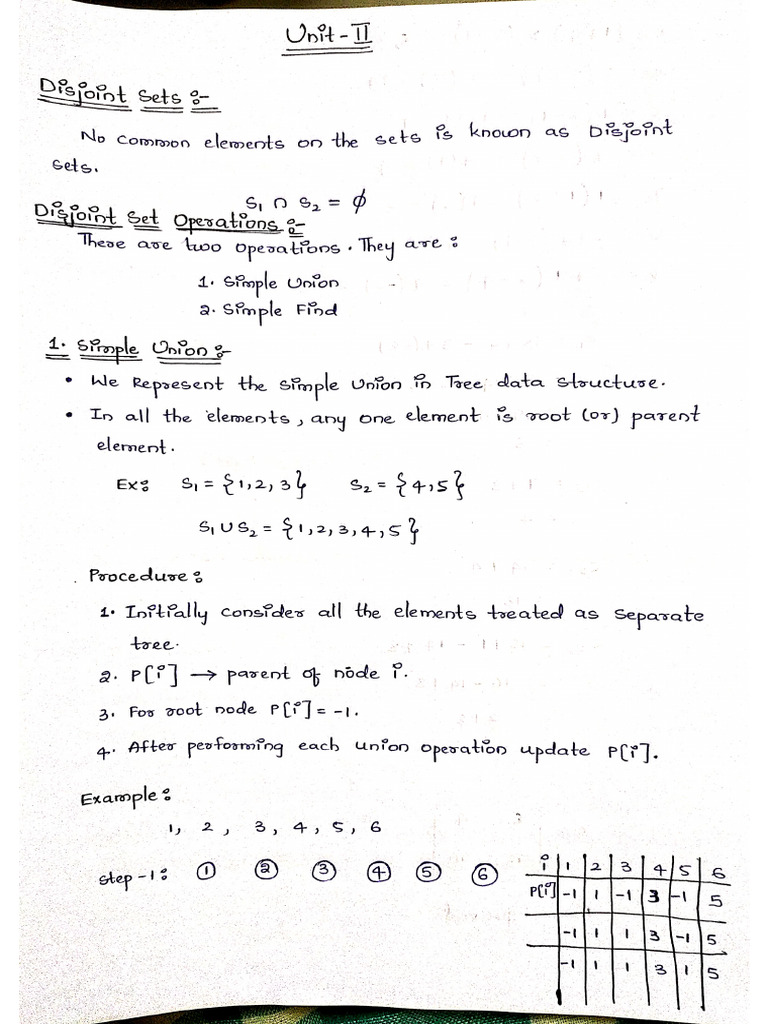 Unit-II
Disjoint Sets :-
No common elements on the sets is known as Disjoint
sets.
S₁ ∩ S₂ = ϕ
Disjoint Set Operations :-
There are two operations. They are :
1. Simple Union
2. Simple Find
1. Simple Union :-
• We Represent the simple Union in Tree data structure.
• In all the elements, any one element is root (or) parent
element.
Ex: S₁ = {1,2,3} S₂ = {4,5}
S₁ ∪ S₂ = {1,2,3,4,5}
Procedure :
1. Initially consider all the elements treated as separate
tree.
2. P[i] → parent of node i.
3. For root node P[i] = -1.
4. After performing each union operation update P[i].
Example :
1, 2, 3, 4, 5, 6
Step-1: 1 2 3 4 5 6
i 1 2 3 4 5 6
P[i] -1 1 -1 3 -1 5
-1 1 1 3 -1 5
-1 1 1 3 1 5